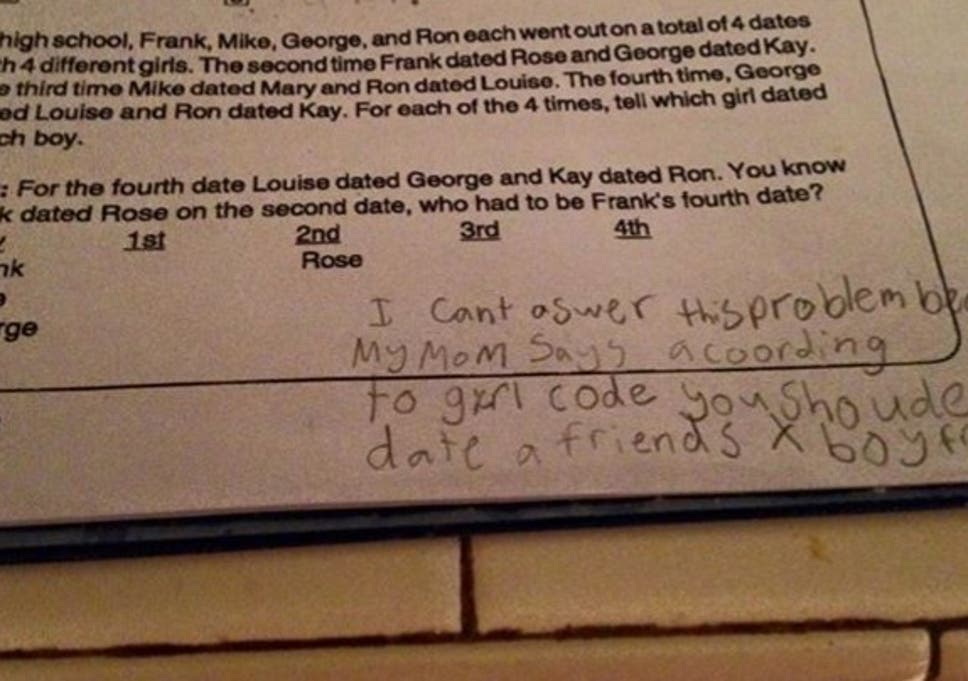 high school, Frank, Mike, George, and Ron each went out on a total of 4 dates
h 4 different girls. The second time Frank dated Rose and George dated Kay.
e third time Mike dated Mary and Ron dated Louise. The fourth time, George
ed Louise and Ron dated Kay. For each of the 4 times, tell which girl dated
ch boy.
: For the fourth date Louise dated George and Kay dated Ron. You know
k dated Rose on the second date, who had to be Frank's fourth date?
1st 2nd 3rd 4th
nk Rose
rge
I Cant aswer this problem be
My Mom Says acoording
to girl code you shoude
date a friends X boyf